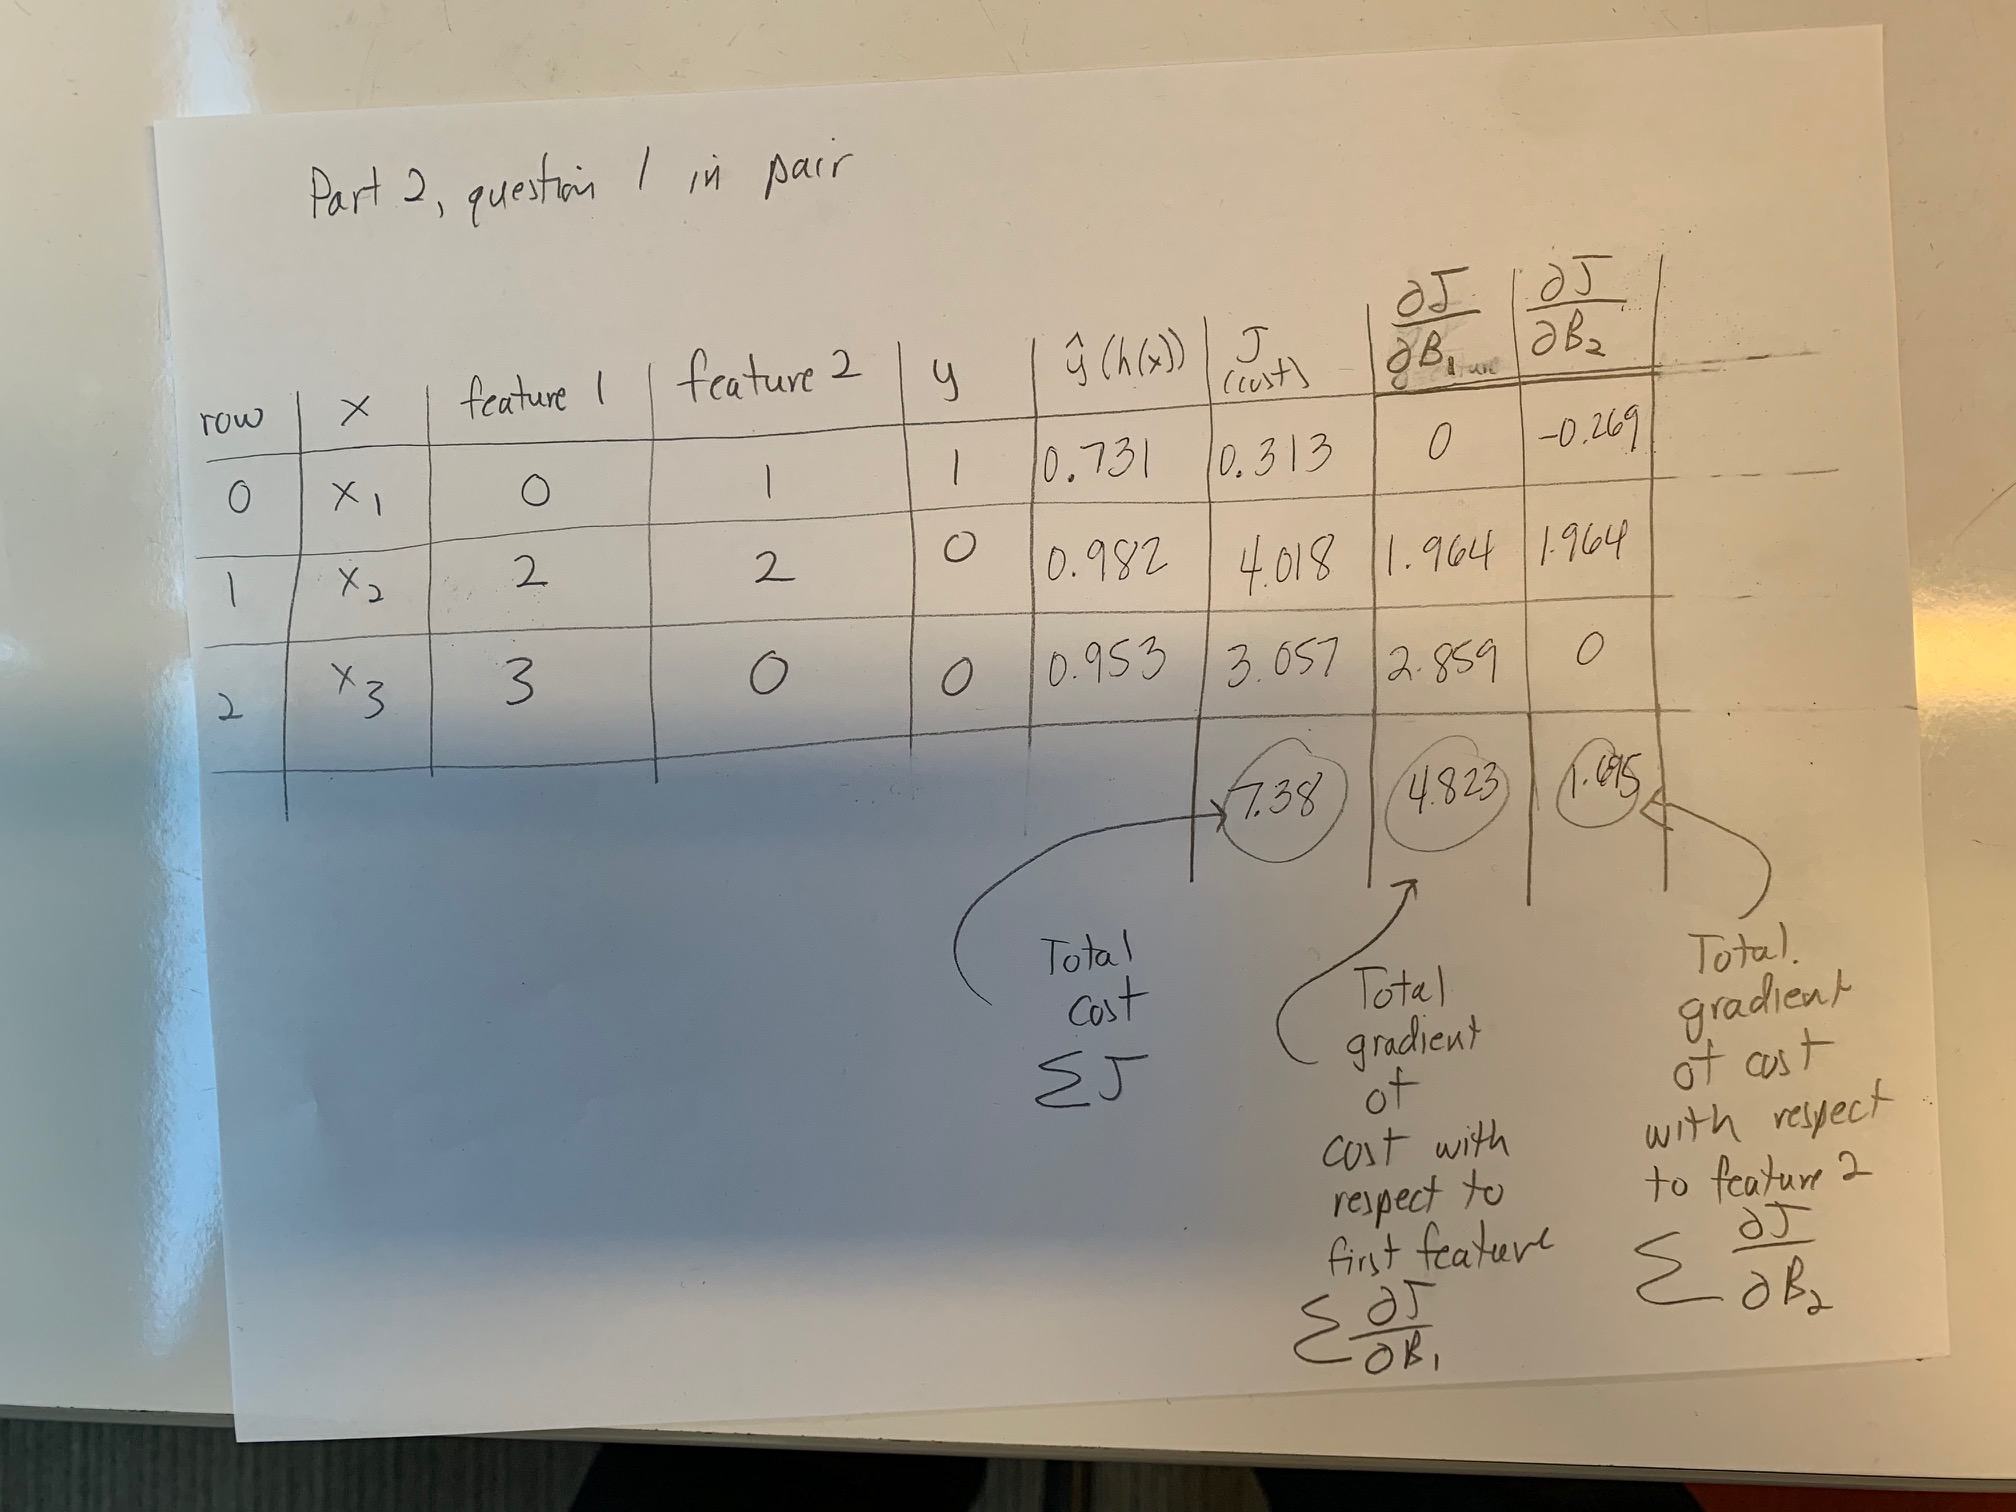 Part 2, question 1 in pair
row x feature 1 feature 2 y ŷ (h(x)) J (cost) ∂J/∂B₁ ∂J/∂B₂
0 x₁ 0 1 1 0.731 0.313 0 -0.269
1 x₂ 2 2 0 0.982 4.018 1.964 1.964
2 x₃ 3 0 0 0.953 3.057 2.859 0
7.38 4.823 1.695
Total
cost
ΣJ
Total
gradient
of
cost with
respect to
first feature
Σ ∂J/∂B₁
Total.
gradient
of cost
with respect
to feature 2
Σ ∂J/∂B₂